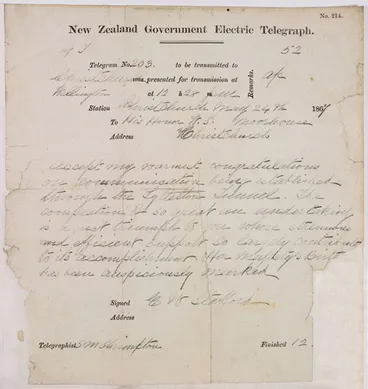 No. 214.
New Zealand Government Electric Telegraph.
52
Telegram No. 203. to be transmitted to
was presented for transmission at
Wellington at 12 h 28 m
Remarks.
Station Christchurch May 24th 1867
To His Honor W. S. Moorhouse
Address Christchurch
Accept my warmest congratulations
on communication being established
through the Lyttelton Tunnel. The
completion of so great an undertaking
is a just triumph to you whose strenuous
and efficient support so largely contributed
to its accomplishment Her Majesty's birth
has been auspiciously marked
Signed E W Stafford
Address
Telegraphist, Shrimpton Finished 12.